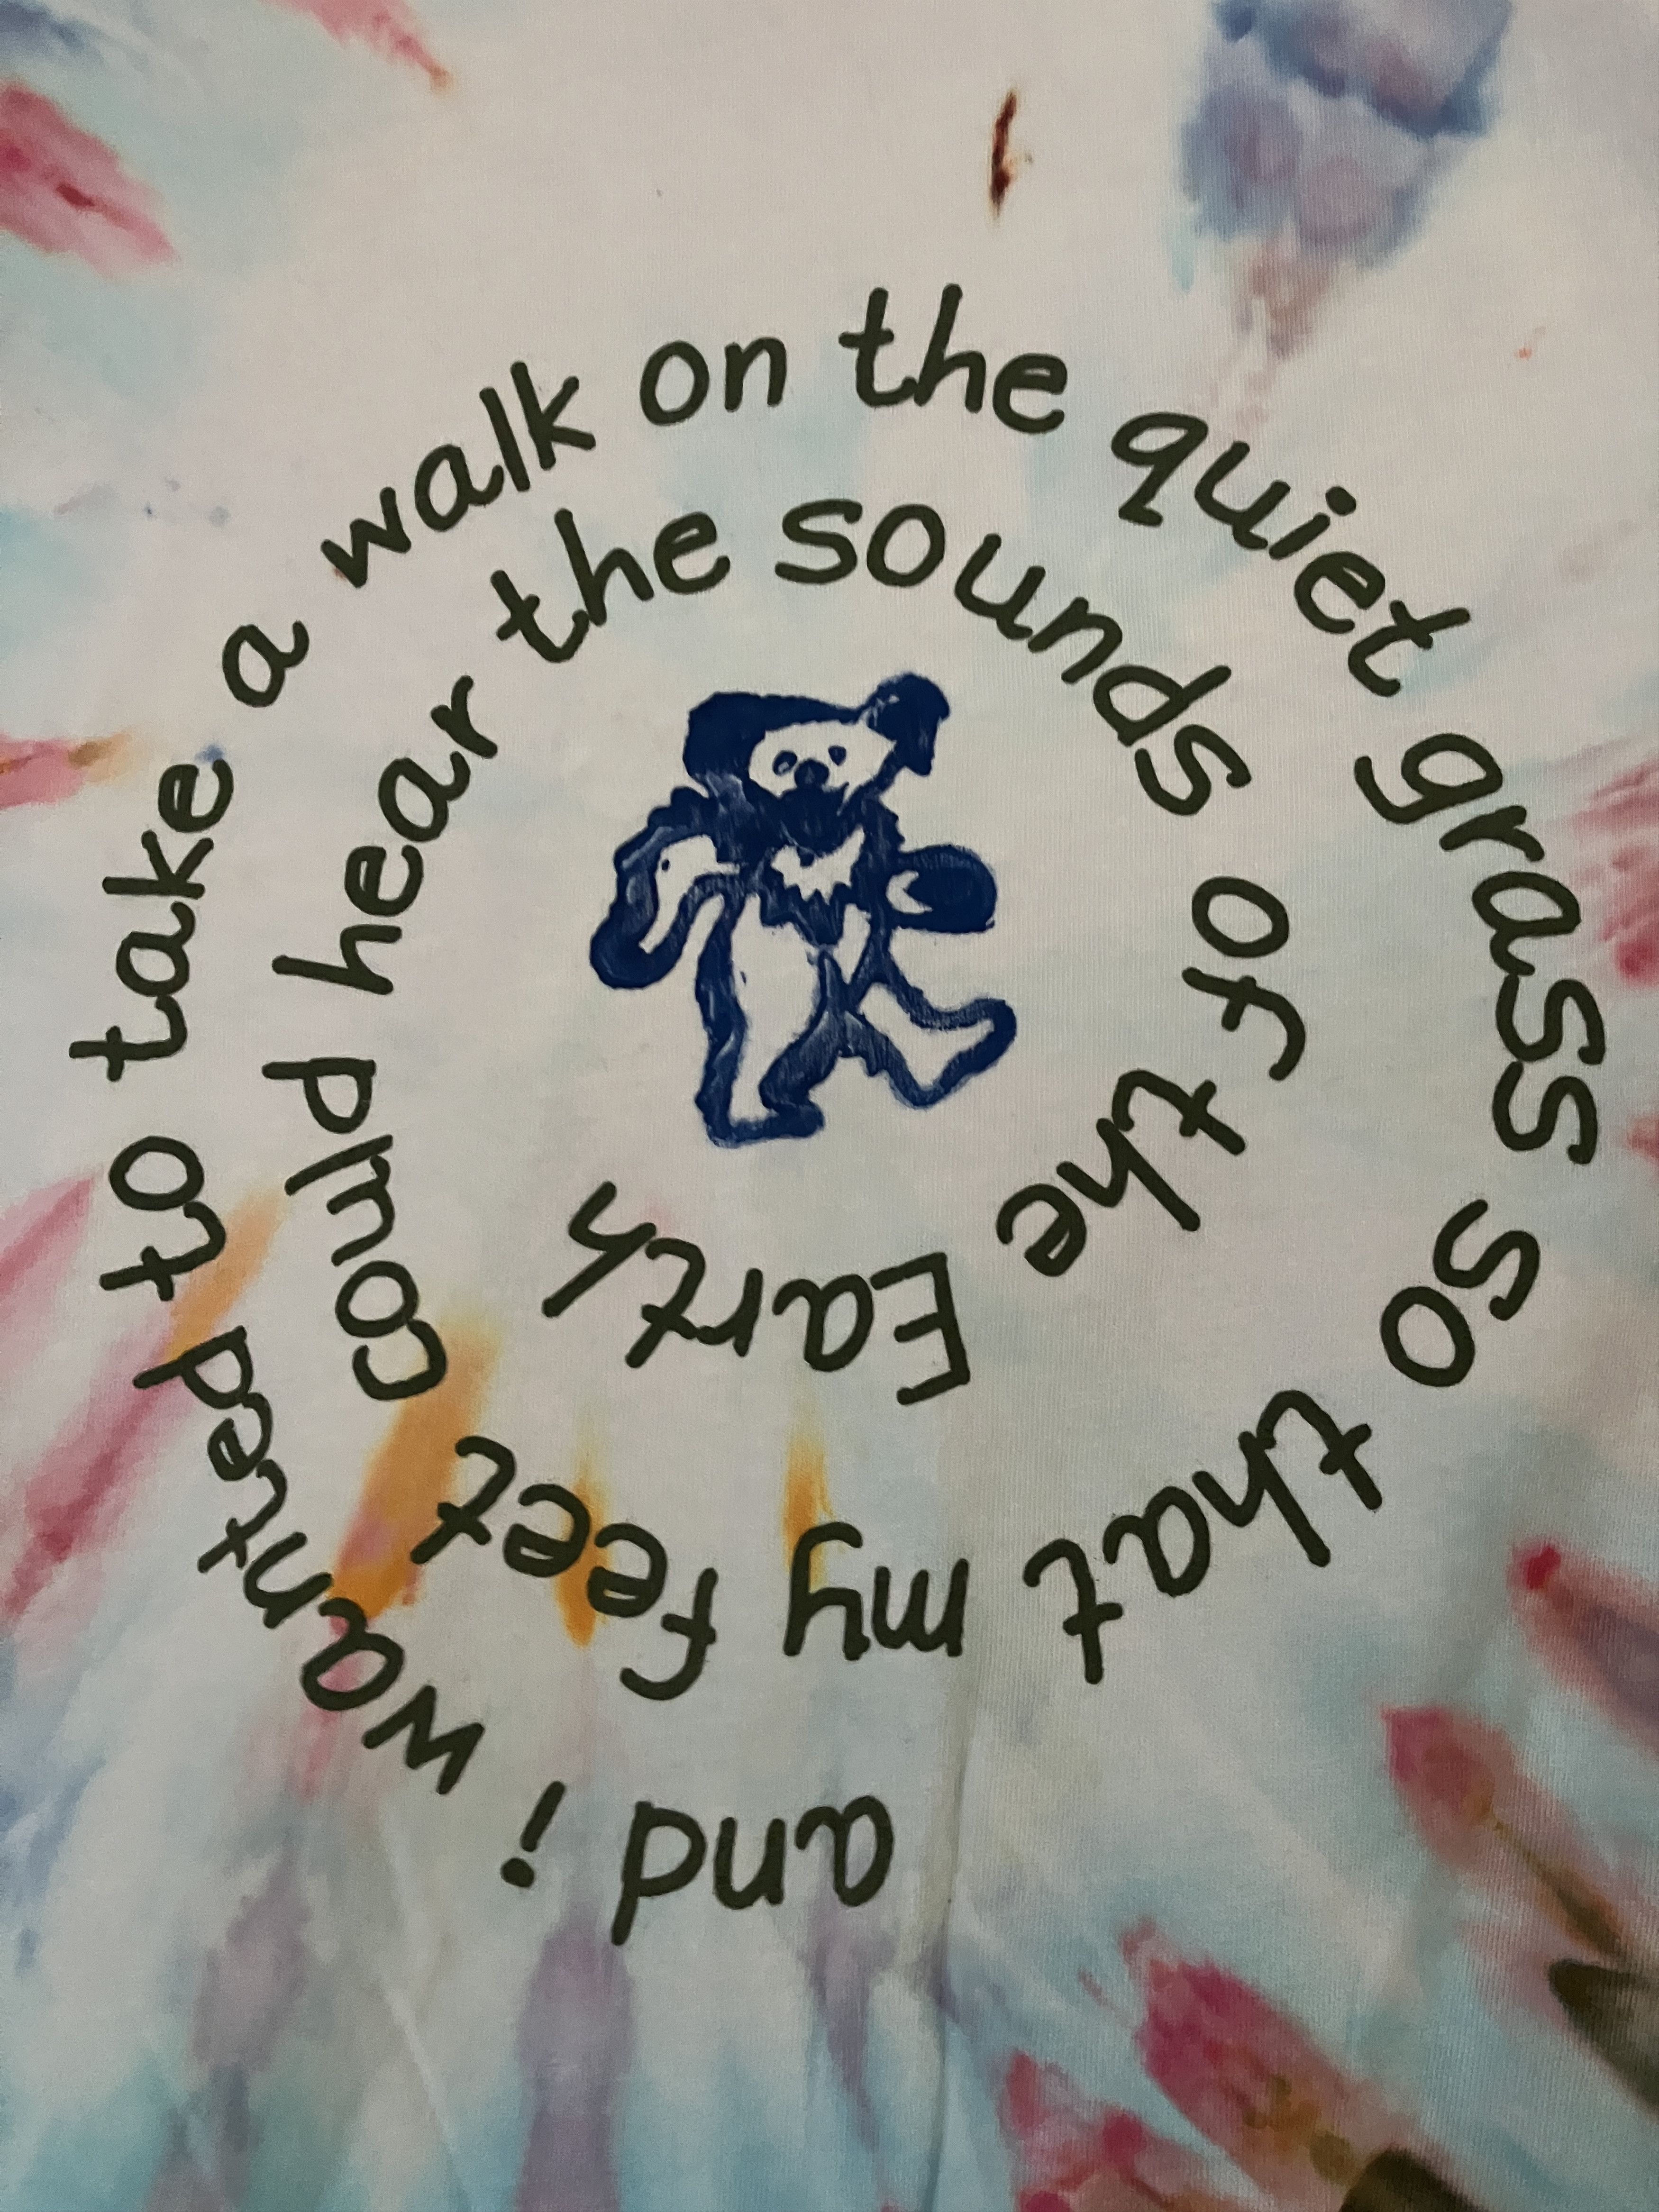 and i wanted to take a walk on the quiet grass so that my feet could hear the sounds of the Earth